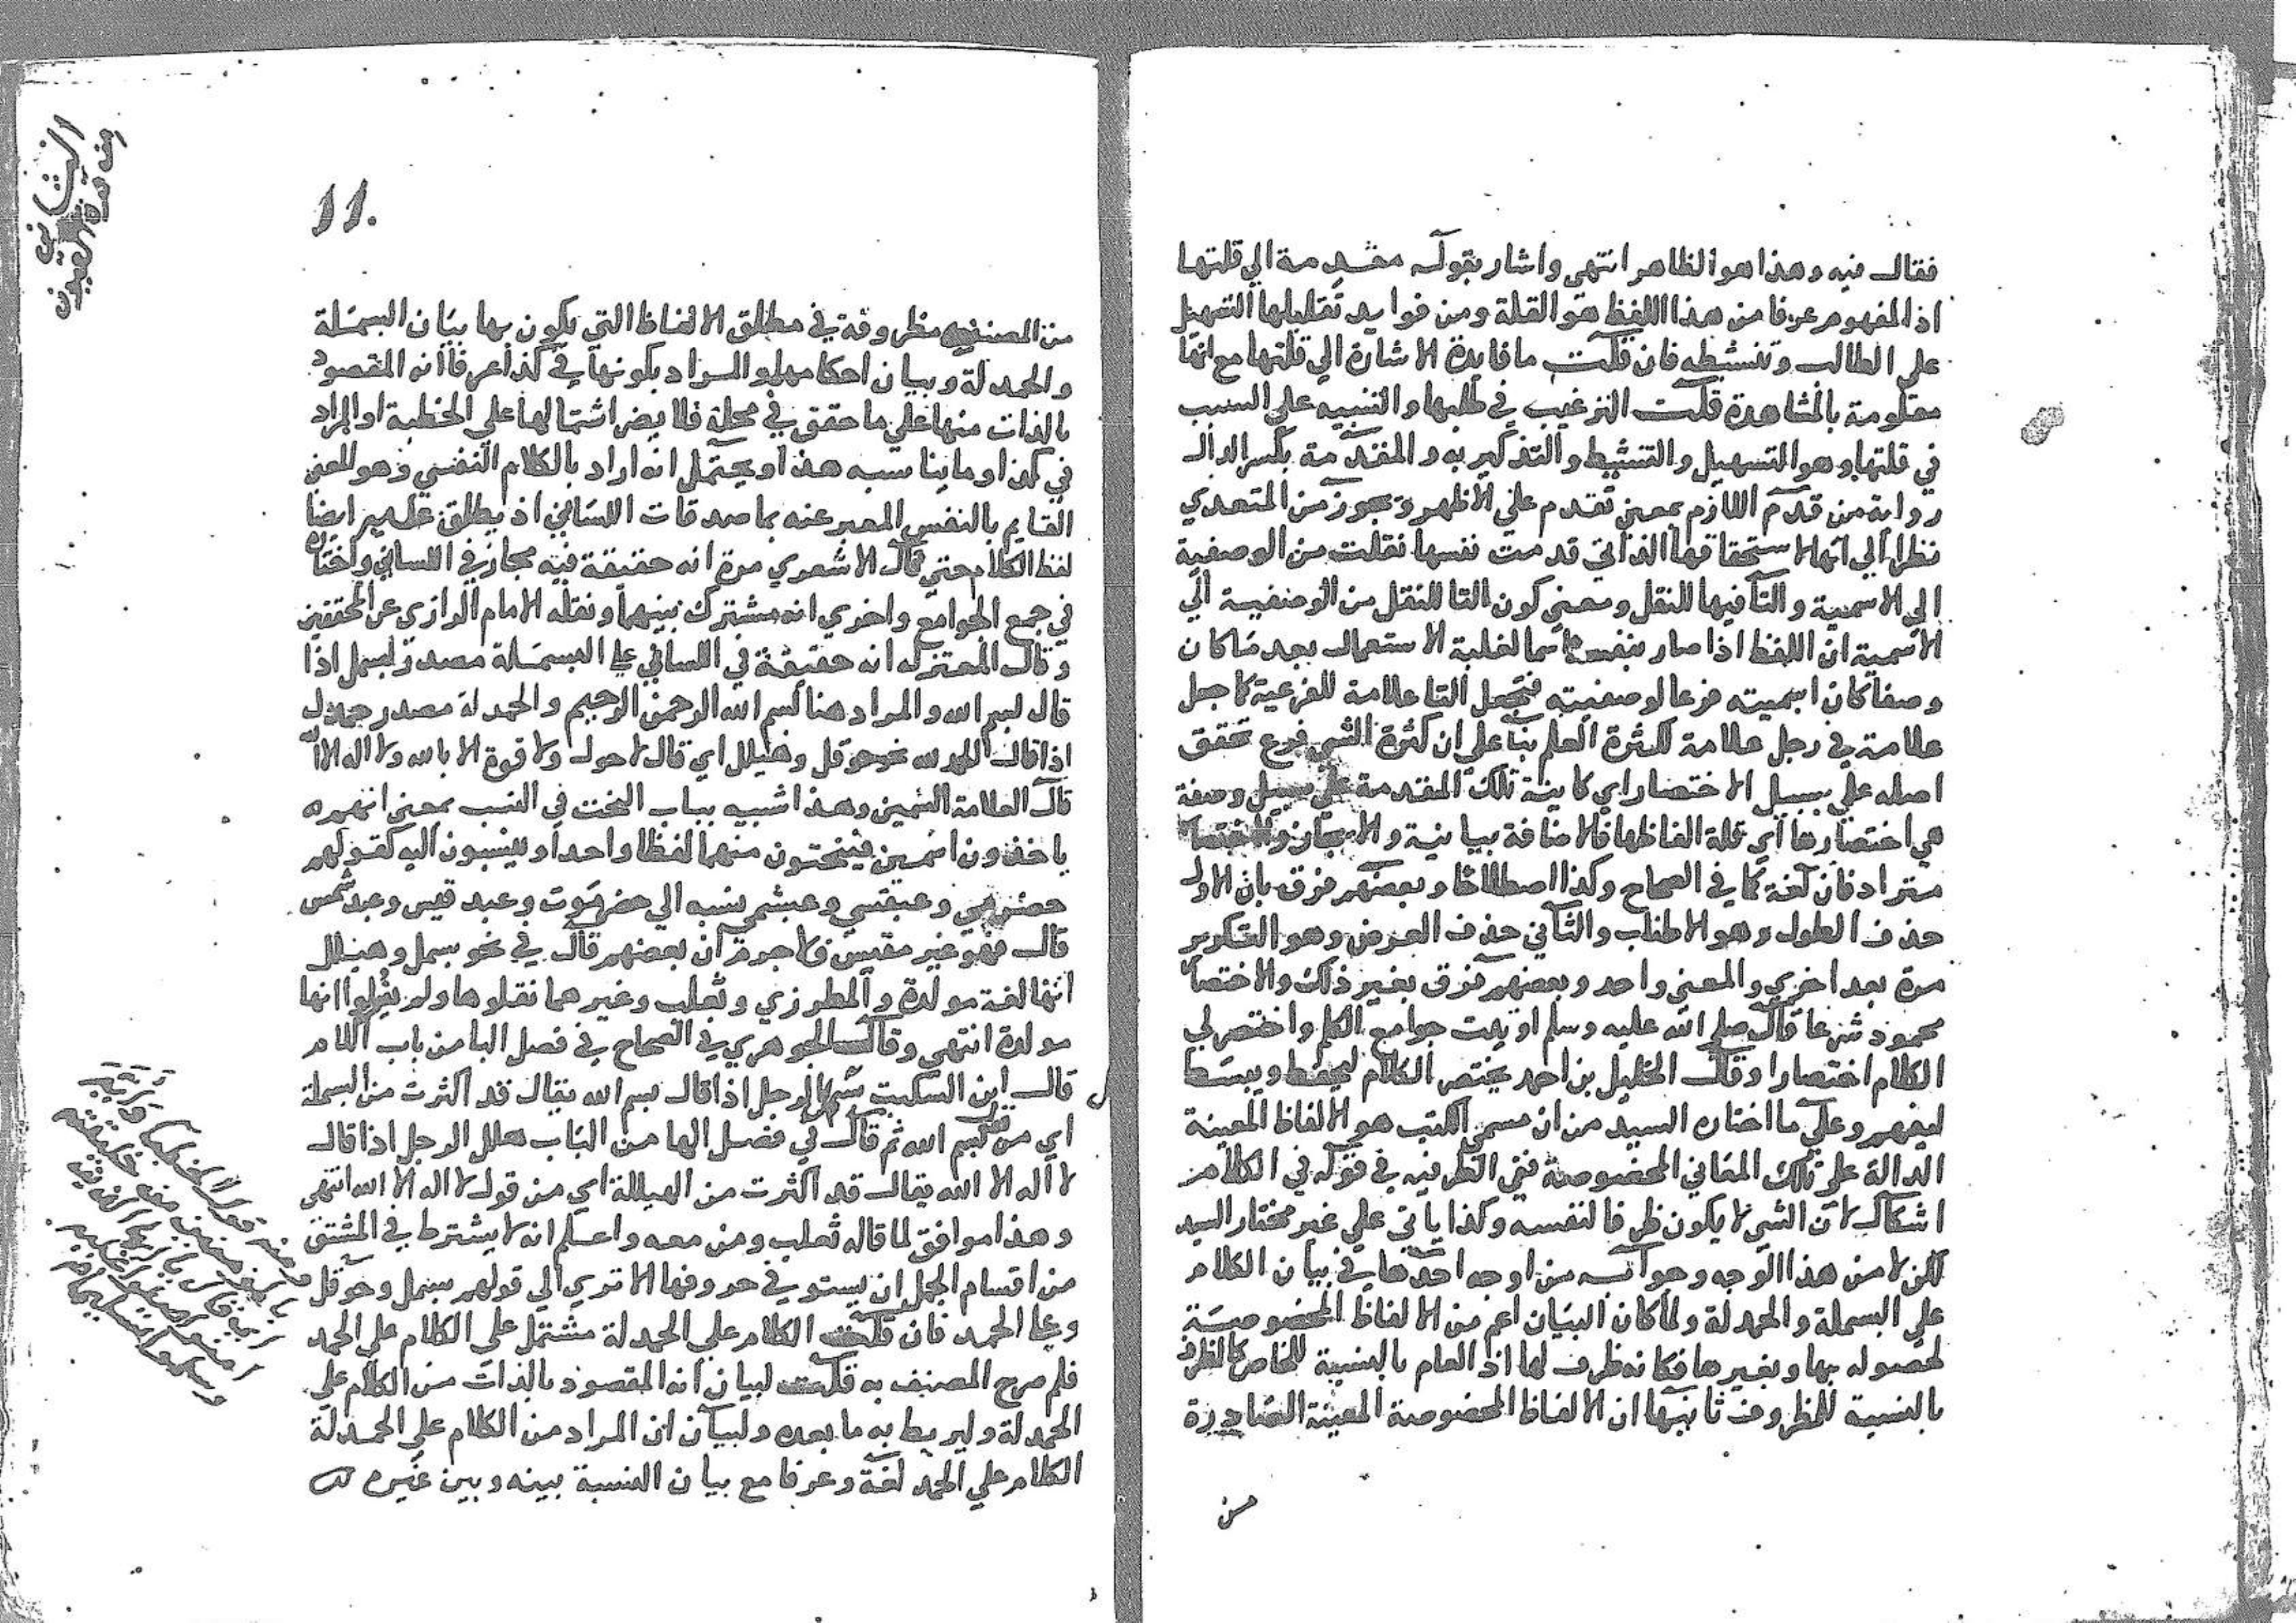 فقال فيه وهذا هو الظاهر انتهى واشار بقوله مقدمة الي قلتها
اذ المفهوم عرفا من هذا اللفظ هو القلة ومن فوايد تقليلها التسهيل
على الطالب وتنشيطه فان قلت ما فايدة الاشارة الي قلتها مع انها
معلومة بالمشاهدة قلت الترغيب في طلبها والتنبيه على السبب
في قلتها وهو التسهيل والتنشيط والتذكير به والمقدمة بكسر الدال
رواية من قدم اللازم بمعنى تقدم علي الاظهر وتجوز من المتعدي
نظرا الي انها لاستحقاقها الذاتي قدمت نفسها نقلت من الوصفية
الي الاسمية والتا فيها للنقل ومعنى كون التا للنقل من الوصفية الي
الاسمية ان اللفظ اذا صار بنفسه اسما لغلبة الاستعمال بعد ما كان
وصفا كان اسميته فرعا لوصفيته فتجعل التا علامة للفرعية كما جعل
علامة في رجل علامة لكثرة العلم بنا على ان كثرة الشي فرع تحقق
اصله علي سبيل الاختصار اي كاينة تلك المقدمة على سبيل وصفة
هي اختصارها اي قلة الفاظها فالاضافة بيانية والايجاز والاختصار
مترادفان لغة كما في الصحاح وكذا اصطلاحا وبعضهم فرق بان الاول
حذف الطول وهو الاطناب والثاني حذف العرض وهو التكرير
مرة بعد اخري والمعنى واحد وبعضهم فرق بغير ذلك والاختصا
محمود شرعا قال صلى الله عليه وسلم اوتيت جوامع الكلم واختصر لي
الكلام اختصارا وقال الخليل بن احمد يختصر الكلام ليحفظ ويبسط
ليفهم وعلي ما اختاره السيد من ان مسمى الكتب هو الالفاظ المعينة
الدالة على تلك المعاني المخصوصة ففي الظرفيه في قوله في الكلام
اشكال لان الشي لا يكون ظرفا لنفسه وكذا ياتي علي غير مختار السيد
لكن لا من هذا الوجه وجوابه من اوجه احدها في بيان الكلام
على البسملة والحمدلة ولما كان البيان اعم من الالفاظ المخصوصة
لحصوله بها وبغيرها فكانه ظرف لها اذ العام بالنسبة للخاص كالظرف
بالنسبة للمظروف ثانيها ان الالفاظ المخصوصة المعينة الصادرة
من
11.
من المصنف مظروفة في مطلق الالفاظ التي يكون بها بيان البسملة
والحمدلة وبيان احكامهما والمراد بكونها في كذا عرفا انه المقصود
بالذات منها علي ما حقق في محله فلا يضر اشتمالها على الخطبة او المراد
في كذا وما يناسبه هذا ويحتمل انه اراد بالكلام النفسي وهو المعنى
القايم بالنفس المعبر عنه بما صدقات اللساني اذ يطلق عليه ايضا
لفظ الكلام حتي قال الاشعري مرة انه حقيقة فيه مجاز في اللساني واختاره
في جمع الجوامع واخري انه مشترك بينهما ونقله الامام الرازي عن المحققين
وقال المعتزله انه حقيقة في اللساني على البسملة مصدر بسمل اذا
قال بسم الله والمراد هنا بسم الله الرحمن الرحيم والحمدلة مصدر حمدل
اذا قال الحمد لله نحو حوقل وهيلل اي قال لا حول ولا قوة الا بالله ولا اله الا الله
قال العلامة السمين وهذا شبيه بباب النحت في النسب بمعنى انهم
ياخذون اسمين فينحتون منهما لفظا واحدا وينسبون اليه كقولهم
حضرمي وعبقسي وعبشمي نسبه الي حضرموت وعبد قيس وعبد شمس
قال فهو غير مقيس ولا جرم ان بعضهم قال في نحو بسمل وهيلل
انها لغة مولدة والمطرزي وثعلب وغيرهما نقلوها ولم يقولوا انها
مولدة انتهى وقال الجوهري في الصحاح في فصل البا من باب اللام
قال ابن السكيت بسمل الرجل اذا قال بسم الله يقال قد اكثرت من البسملة
اي من بسم الله ثم قال في فصل الها من الباب هلل الرجل اذا قال
لا اله الا الله يقال قد اكثرت من الهيللة اي من قول لا اله الا الله انتهى
وهذا موافق لما قاله ثعلب ومن معه واعلم انه لا يشترط في المشتق
من اقسام الجمل ان يستوفي حروفها الا تري الي قولهم بسمل وحوقل
وعلى الحمد فان قلت الكلام علي الحمدلة مشتمل على الكلام على الحمد
فلم صرح المصنف به قلت لبيان انه المقصود بالذات من الكلام علي
الحمدلة وليربط به ما بعده ولبيان ان المراد من الكلام على الحمدلة
الكلام علي الحمد لغة وعرفا مع بيان النسبة بينه وبين غيره